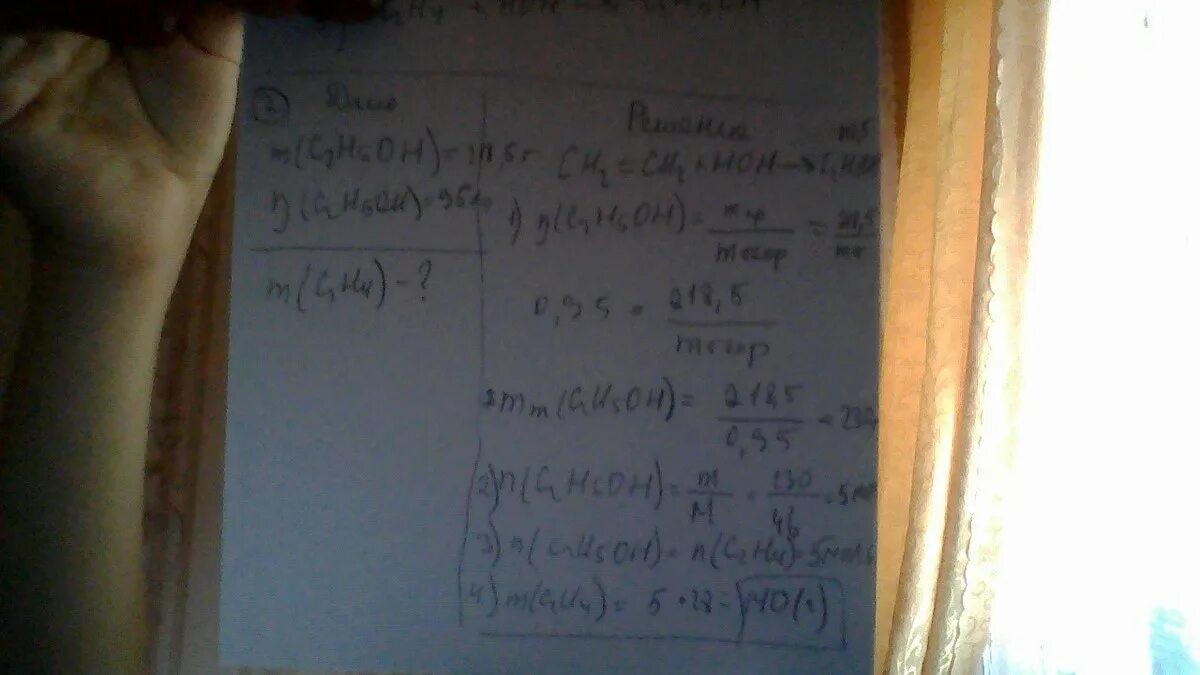 + HOH
② Дано
m(C₂H₅OH) =
η(C₂H₅OH) = 95%
m(C₂H₄) - ?
Решение
CH₂ = CH₂ + HOH →
1) η(C₂H₅OH) = mпр / mтеор =
0,95 = 218,5 / mтеор
m(C₂H₅OH) = 218,5 / 0,95 = 230
2) n(C₂H₅OH) = m / M = 230 / 46 = 5
3) n(C₂H₅OH) = n(C₂H₄) = 5моль
4) m(C₂H₄) = 5 · 28 = 140(г)